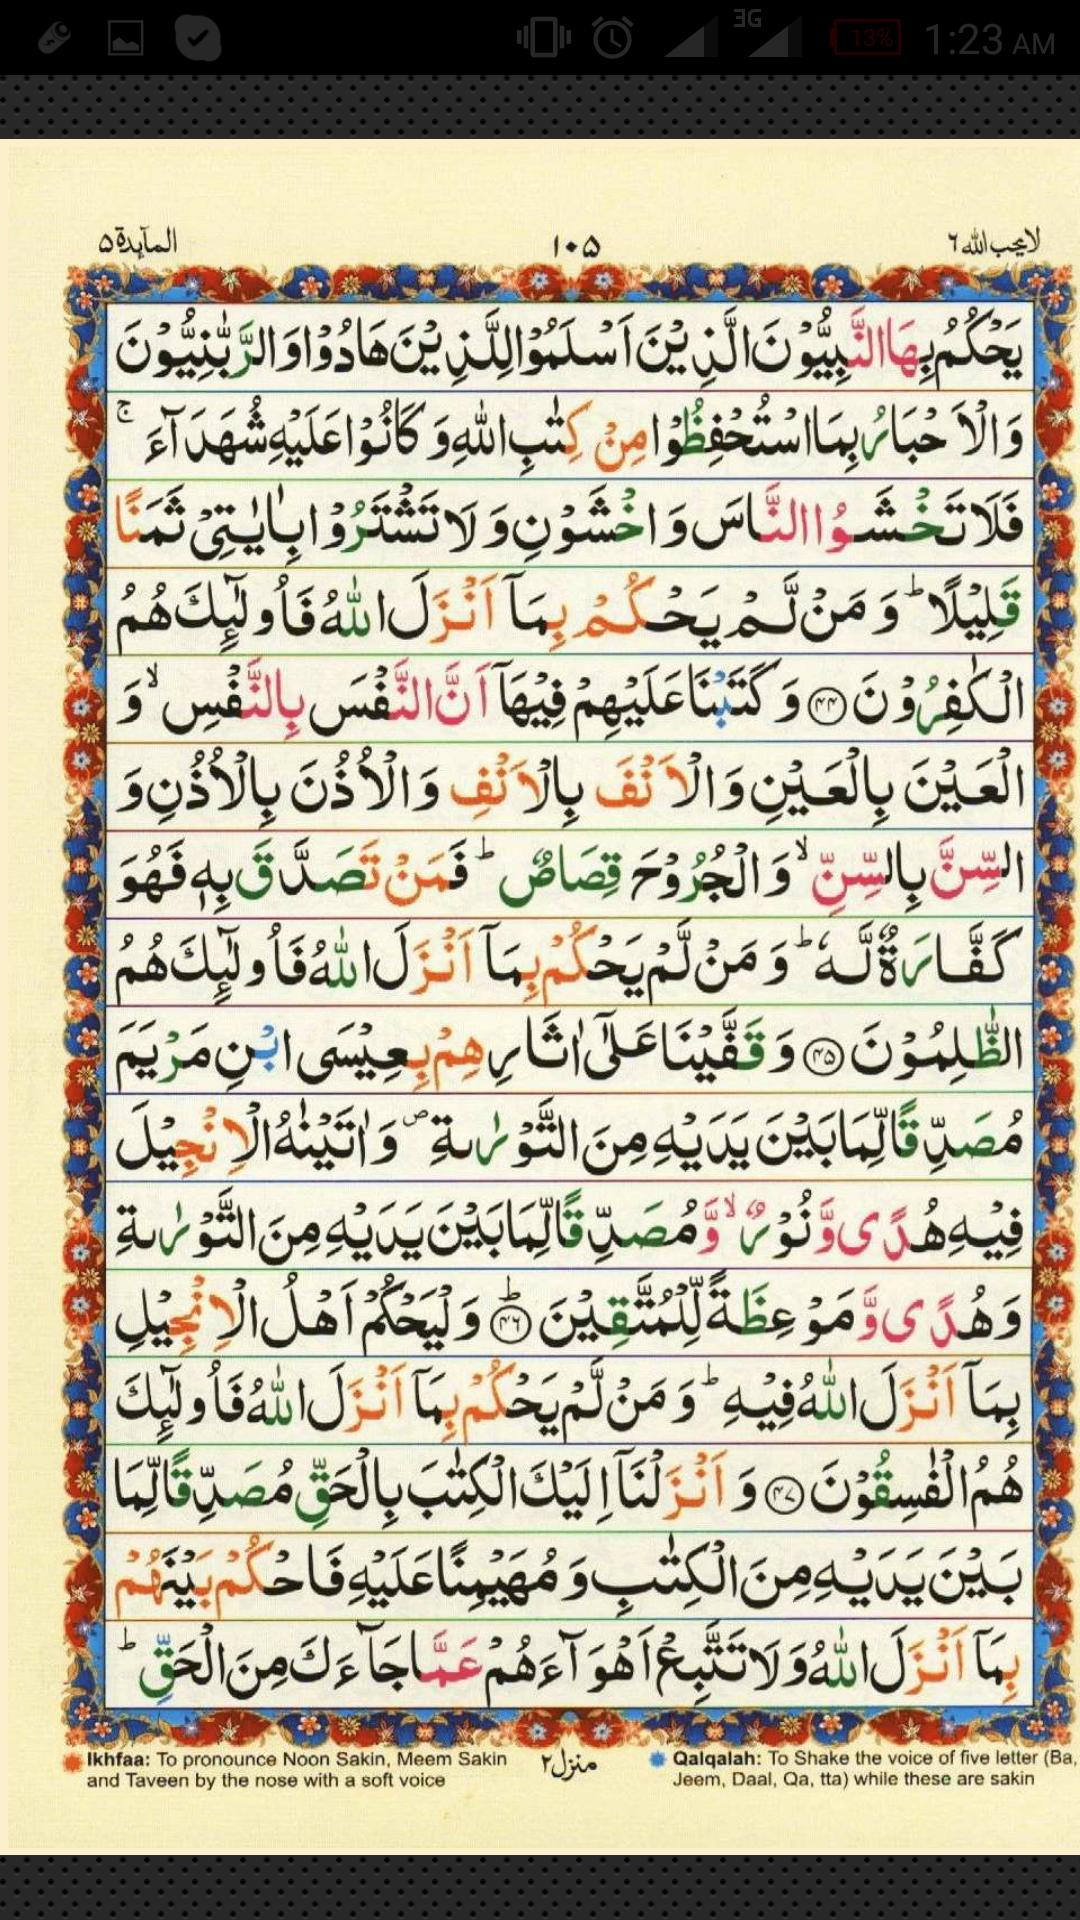 3G
13%
1:23 AM
المآىِٕدة ٥
١٠٥
لا يحب الله ٦
يَحْكُمُ بِهَا النَّبِيُّوْنَ الَّذِيْنَ اَسْلَمُوْا لِلَّذِيْنَ هَادُوْا وَ الرَّبّٰنِيُّوْنَ
وَ الْاَحْبَارُ بِمَا اسْتُحْفِظُوْا مِنْ كِتٰبِ اللّٰهِ وَ كَانُوْا عَلَيْهِ شُهَدَآءَ ۚ
فَلَا تَخْشَوُا النَّاسَ وَ اخْشَوْنِ وَ لَا تَشْتَرُوْا بِاٰيٰتِىْ ثَمَنًا
قَلِيْلًا ؕ وَ مَنْ لَّمْ يَحْكُمْ بِمَآ اَنْزَلَ اللّٰهُ فَاُولٰٓىِٕكَ هُمُ
الْكٰفِرُوْنَ ﴿٤٤﴾ وَ كَتَبْنَا عَلَيْهِمْ فِيْهَآ اَنَّ النَّفْسَ بِالنَّفْسِ ۙ وَ
الْعَيْنَ بِالْعَيْنِ وَ الْاَنْفَ بِالْاَنْفِ وَ الْاُذُنَ بِالْاُذُنِ وَ
السِّنَّ بِالسِّنِّ ۙ وَ الْجُرُوْحَ قِصَاصٌ ؕ فَمَنْ تَصَدَّقَ بِهٖ فَهُوَ
كَفَّارَةٌ لَّهٗ ؕ وَ مَنْ لَّمْ يَحْكُمْ بِمَآ اَنْزَلَ اللّٰهُ فَاُولٰٓىِٕكَ هُمُ
الظّٰلِمُوْنَ ﴿٤٥﴾ وَ قَفَّيْنَا عَلٰٓى اٰثَارِهِمْ بِعِيْسَى ابْنِ مَرْيَمَ
مُصَدِّقًا لِّمَا بَيْنَ يَدَيْهِ مِنَ التَّوْرٰىةِ ۪ وَ اٰتَيْنٰهُ الْاِنْجِيْلَ
فِيْهِ هُدًى وَّ نُوْرٌ ۙ وَّ مُصَدِّقًا لِّمَا بَيْنَ يَدَيْهِ مِنَ التَّوْرٰىةِ
وَ هُدًى وَّ مَوْعِظَةً لِّلْمُتَّقِيْنَ ﴿٤٦﴾ؕ وَ لْيَحْكُمْ اَهْلُ الْاِنْجِيْلِ
بِمَآ اَنْزَلَ اللّٰهُ فِيْهِ ؕ وَ مَنْ لَّمْ يَحْكُمْ بِمَآ اَنْزَلَ اللّٰهُ فَاُولٰٓىِٕكَ
هُمُ الْفٰسِقُوْنَ ﴿٤٧﴾ وَ اَنْزَلْنَآ اِلَيْكَ الْكِتٰبَ بِالْحَقِّ مُصَدِّقًا لِّمَا
بَيْنَ يَدَيْهِ مِنَ الْكِتٰبِ وَ مُهَيْمِنًا عَلَيْهِ فَاحْكُمْ بَيْنَهُمْ
بِمَآ اَنْزَلَ اللّٰهُ وَ لَا تَتَّبِعْ اَهْوَآءَهُمْ عَمَّا جَآءَكَ مِنَ الْحَقِّ ؕ
Ikhfaa: To pronounce Noon Sakin, Meem Sakin
and Taveen by the nose with a soft voice
منزل ٢
Qalqalah: To Shake the voice of five letter (Ba,
Jeem, Daal, Qa, tta) while these are sakin